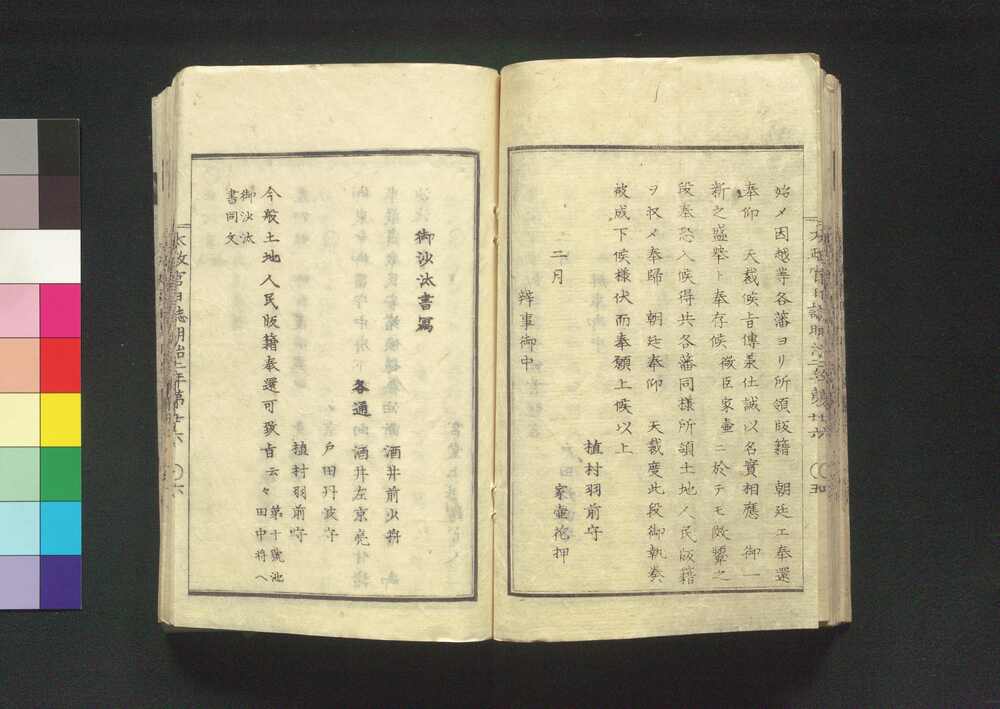 始メ因越等各藩ヨリ所領版籍 朝廷エ奉還
奉仰 天裁候旨傳承仕誠以名實相應 御一
新之盛擧ト奉存候 微臣家壷ニ於テモ
段奉恐入候得共各藩同樣所領土地人民版籍
ヲ収メ奉歸 朝廷奉仰 天裁度此段御執奏
被成下候樣伏而奉願上候以上
植村羽前守
二月 家壷花押
辨事御中
太政官日誌明治二年第廿六
御沙汰書寫
酒井前少將
各通 酒井左京亮
戸田丹波守
植村羽前守
今般土地人民版籍奉還可致旨云々第十號池田中將ヘ
御沙汰
書同文
太政官日誌明治二年第廿六 六